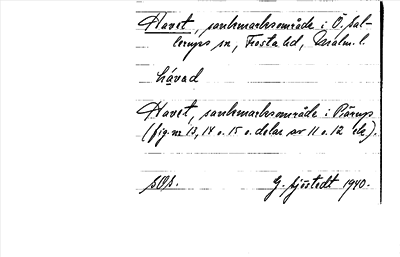 Havet, sankmarksområde i Ö. Sal-
lerups sn, Frosta hd, Malm. l.
håvad
Havet, sankmarksområde i Pärup
(fig nr 13, 14 o. 15 o. delar av 11 o. 12 ek).
G. Sjöstedt 1940.